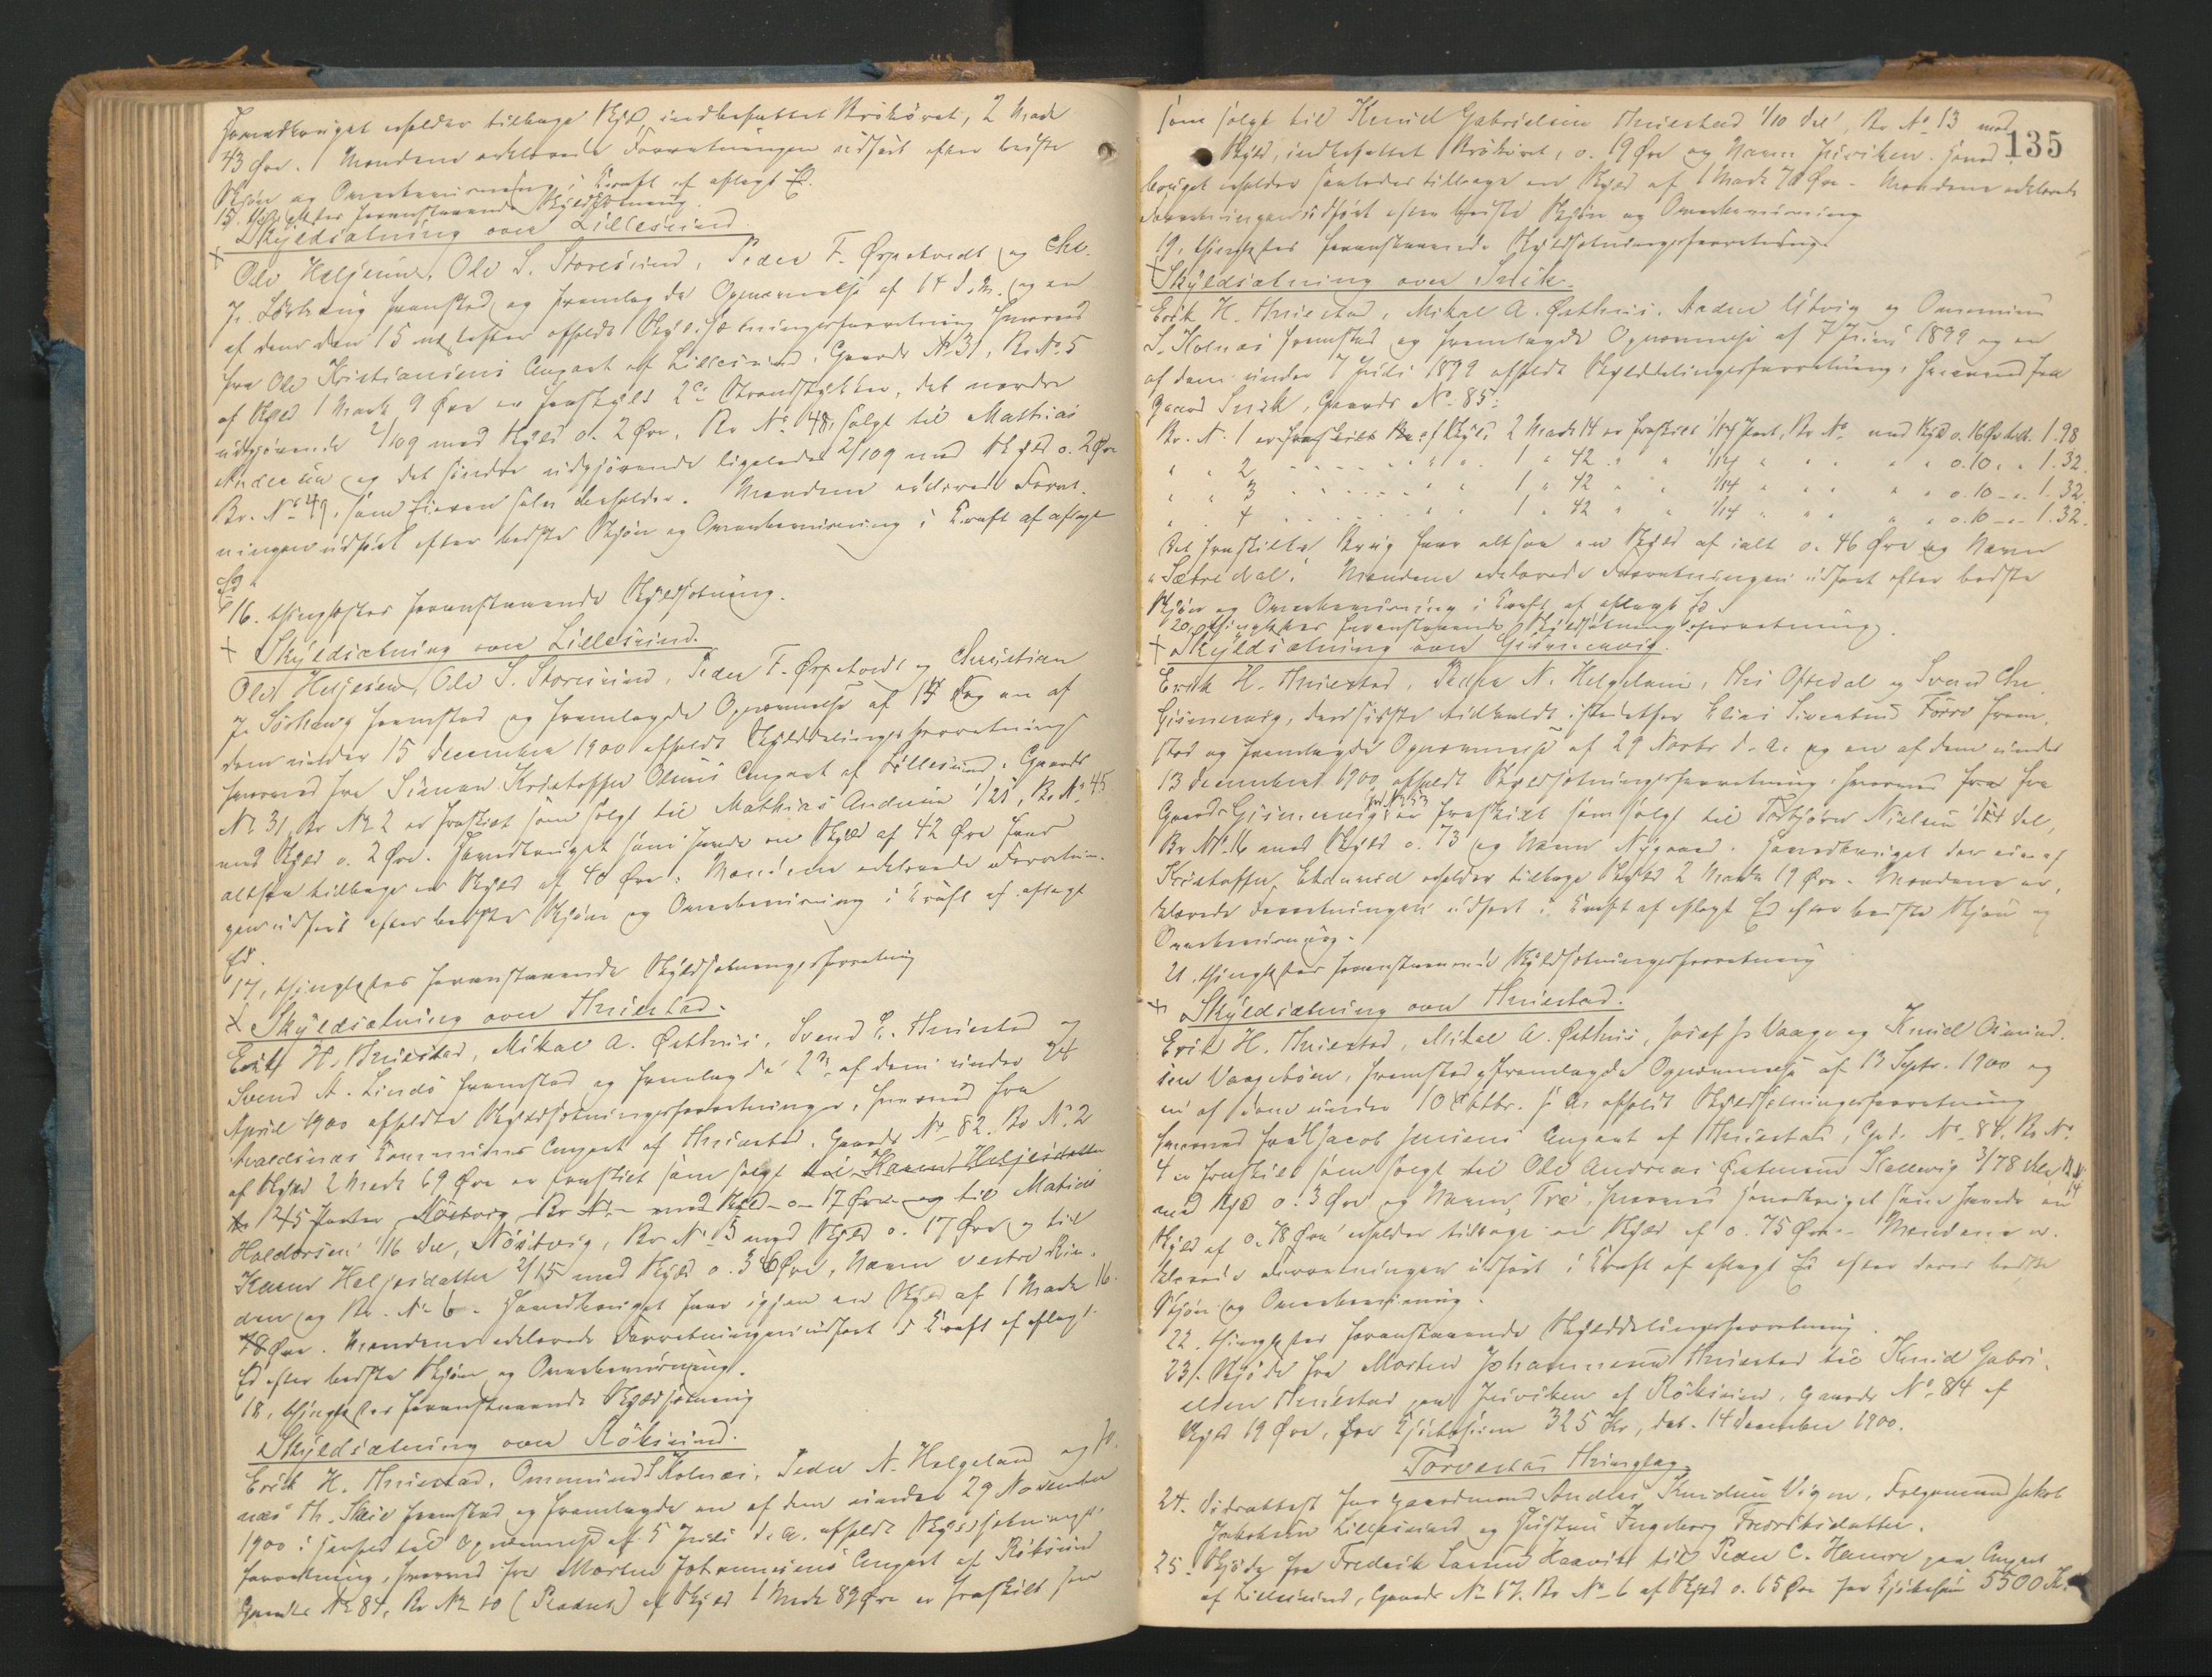 Hovedbruget beholder tilbage Skyld, indbefattet Brøkøret, 2 Mark
43 Øre. Mændene erklærede Forretningen udført efter bedste
Skjøn og Overbevisning i Kraft af aflagt Ed.
15. thinglæstes foranstaaende Skyldsætning.
+ Skyldsætning over Lillesund
Ole Heljesen, Ole S. Storesund, Peder F. Ørpetvedt og Chr.
J. Sørhaug fremstod og fremlagde Opnævnelse af 14 d.M. og en
af dem den 15 næstefter afholdt Skyldsætningsforretning hvorved
fra Ole Kristiansens Anpart af Lillesund, Gaards No 31, Br. No 5
af Skyld 1 Mark 9 Øre er fraskyldt 2de Strandstykker, det nordre
udgjørende 2/109 med Skyld o. 2 Øre, Br No 48, solgt til Mathias
Andersen og det søndre udgjørende ligeledes 2/109 med Skyld o. 2 Øre
Br. No 49, som Eieren selv beholder. Mændene erklærede Forret-
ningen udført efter bedste Skjøn og Overbevisning i Kraft af aflagt
Ed.
16. thinglæstes foranstaaende Skyldsætning.
+ Skyldsætning over Lillesund.
Ole Heljesen, Ole S. Storesund, Peder F. Ørpetvedt og Christian
J. Sørhaug fremstod og fremlagde Opnævnelse af 14 og en af
dem under 15 December 1900 afholdt Skylddelingsforretning
hvorved fra Simon Kristoffer Olsens Anpart af Lillesund, Gaards
No 31, Br No 2 er fraskilt som solgt til Mathias Andersen 1/21, Br. No 45
med Skyld o. 2 Øre. Hovedbruget som havde en Skyld af 42 Øre har
altsaa tilbage en Skyld af 40 Øre. Mændene erklærede Forretnin-
gen udført efter bedste Skjøn og Overbevisning i Kraft af aflagt
Ed.
17, thinglæstes foranstaaende Skyldsætningsforretning
+ Skyldsætning over Thuestad.
Erik H. Thuestad, Mikal A. Østhus, Svend E. Thuestad og
Svend A. Lindø fremstod og fremlagde 2de af dem under 24
April 1900 afholdte Skyldsætningsforretninger, hvorved fra
Avaldsnæs Kommunes Anpart af Thuestad, Gaards No 82. Br No 2
af Skyld 2 Mark 69 Øre er fraskilt som solgt til Karen Heljesdatter
1 2/15 Parter Nøstvig Br No - med Skyld o. 17 Øre og til Matias
Haldorsen 1/16 Del, Nøstvig, Br No 5 med Skyld o. 17 Øre og til
Karen Heljesdatter 2/15 med Skyld o. 36 Øre, Navn vestre Rin-
den og Br. No 6. Hovedbruget har igjen en Skyld af 1 Mark 16.
Øre. Mændene erklærede Forretningen udført i Kraft af aflagt
Ed efter bedste Skjøn og Overbevisning.
18, thinglæstes foranstaaende Skyldsætning
Skyldsætning over Röksund.
Erik H. Thuestad, Ommund Kolnes, Peder N. Helgeland og Jo-
nas Th. Skeie fremstod og fremlagde en af dem under 29 November
1900 i Henhold til Opnævnelse af 5 Juli d.A. afholdt Skyldsætnings-
forretning, hvorved fra Morten Johannesens Anpart af Röksund
Gaards No 84, Br No 10 (Pladsen) af Skyld 1 Mark 89 Øre er fraskilt
som solgt til Knud Gabrielsen Thuestad 1/10 Del, Br No 13 med
135
Skyld, indbefattet Brøkøret, o. 19 Øre og Navn Juviken. Hoved-
bruget beholder saaledes tilbage en Skyld af 1 Mark 70 Øre. Mændene erklærede
Forretningen udført efter bedste Skjøn og Overbevisning
19, thinglæstes foranstaaende Skyldsætningsforretning.
+ Skyldsætning over Snik.
Erik H. Thuestad, Mikal A. Østhus, Anders Utvig og Ommund
S. Kolnes fremstod og fremlagde Opnævnelse af 7 Juni 1899 og en
af dem under 7 Juli 1899 afholdt Skylddelingsforretning, hvorved fra
Gaard Snik, Gaards No 85:
Br. No. 1 er fraskilt Br af Skyld 2 Mark 14 er fraskilt 1/14 Part, Br No med Skyld o. 16 Øre 1.98
" " 2 - - - - - " " 1 " 42 " " 1/14 " " " " o. 10 " 1.32.
" " 3 - - - - - " " 1 " 42 " " 1/14 " " " " o. 10 - " 1.32.
" " 4 - - - - - " " 1 " 42 " " 1/14 " " " " o. 10 - " 1.32.
Det fraskilte Brug har altsaa en Skyld af ialt o. 46 Øre og Navn
"Sætredal". Mændene erklærede Forretningen udført efter bedste
Skjøn og Overbevisning i Kraft af aflagt Ed.
20, thinglæstes foranstaaende Skyldsætningsforretning.
+ Skyldsætning over Gismervig.
Erik H. Thuestad, Peder N. Helgeland, Ths Oftedal og Svend Chr.
Gismervig, den sidste tilkaldt istedetfor Elias Førre frem-
stod og fremlagde Opnævnelse af 29 Novbr d.A. og en af dem under
13 December 1900 afholdt Skyldsætningsforretning, hvorved fra
Gaard Gismervig, No 53 er fraskilt som solgt til Torbjörn Nielsen Del,
Br No 16 med Skyld o. 73 og Navn Nygaard. Hovedbruget der eies af
Kristoffer Edvard beholder tilbage Skyld 2 Mark 19 Øre. Mændene er-
klærede Forretningen udført i Kraft af aflagt Ed efter bedste Skjøn og
Overbevisning.
21. thinglæstes foranstaaende Skyldsætningsforretning
+ Skyldsætning over Thuestad.
Erik H. Thuestad, Mikal A. Østhus, Josef J. Vaage og Knud Osmund-
sen Vaagebøen, fremstod og fremlagde Opnævnelse af 13 Septr. 1900 og
en af dem under 10 Oktbr. s.A. afholdt Skyldsætningsforretning
hvorved fra Jacob Jensens Anpart af Thuestad, Gds. No 81. Br. No
4 er fraskilt som solgt til Ole Andreas Østensen Kallevig 3/78 Dele Br No 14
med Skyld o. 3 Øre og Navn, Træ. Hvorved Hovedbruget som havde en
Skyld af o. 78 Øre beholder tilbage en Skyld af o. 75 Øre. Mændene er-
klærede Forretningen udført i Kraft af aflagt Ed efter deres bedste
Skjøn og Overbevisning.
22. thinglæstes foranstaaende Skylddelingsforretning.
23. Skjøde fra Morten Johannesen Thuestad til Knud Gabri-
elsen Thuestad paa Juviken af Röksund, Gaards No 84 af
Skyld 19 Øre, for Kjøbesum 325 Kr, dat. 14 December 1900.
Torvestad Thinglag.
24. Vidneattest for Gaardmand Andreas Knudsen Vigen, Jakob
Jakobsen Lillesund og Hustru Ingeborg Fredriksdatter.
25. Skjøde fra Fredrik Larsen Haavik til Peder C. Hamre paa Anpart
af Lillesund, Gaards No 17. Br No 6 af Skyld o. 65 Øre for Kjøbesum 5500 Kr.